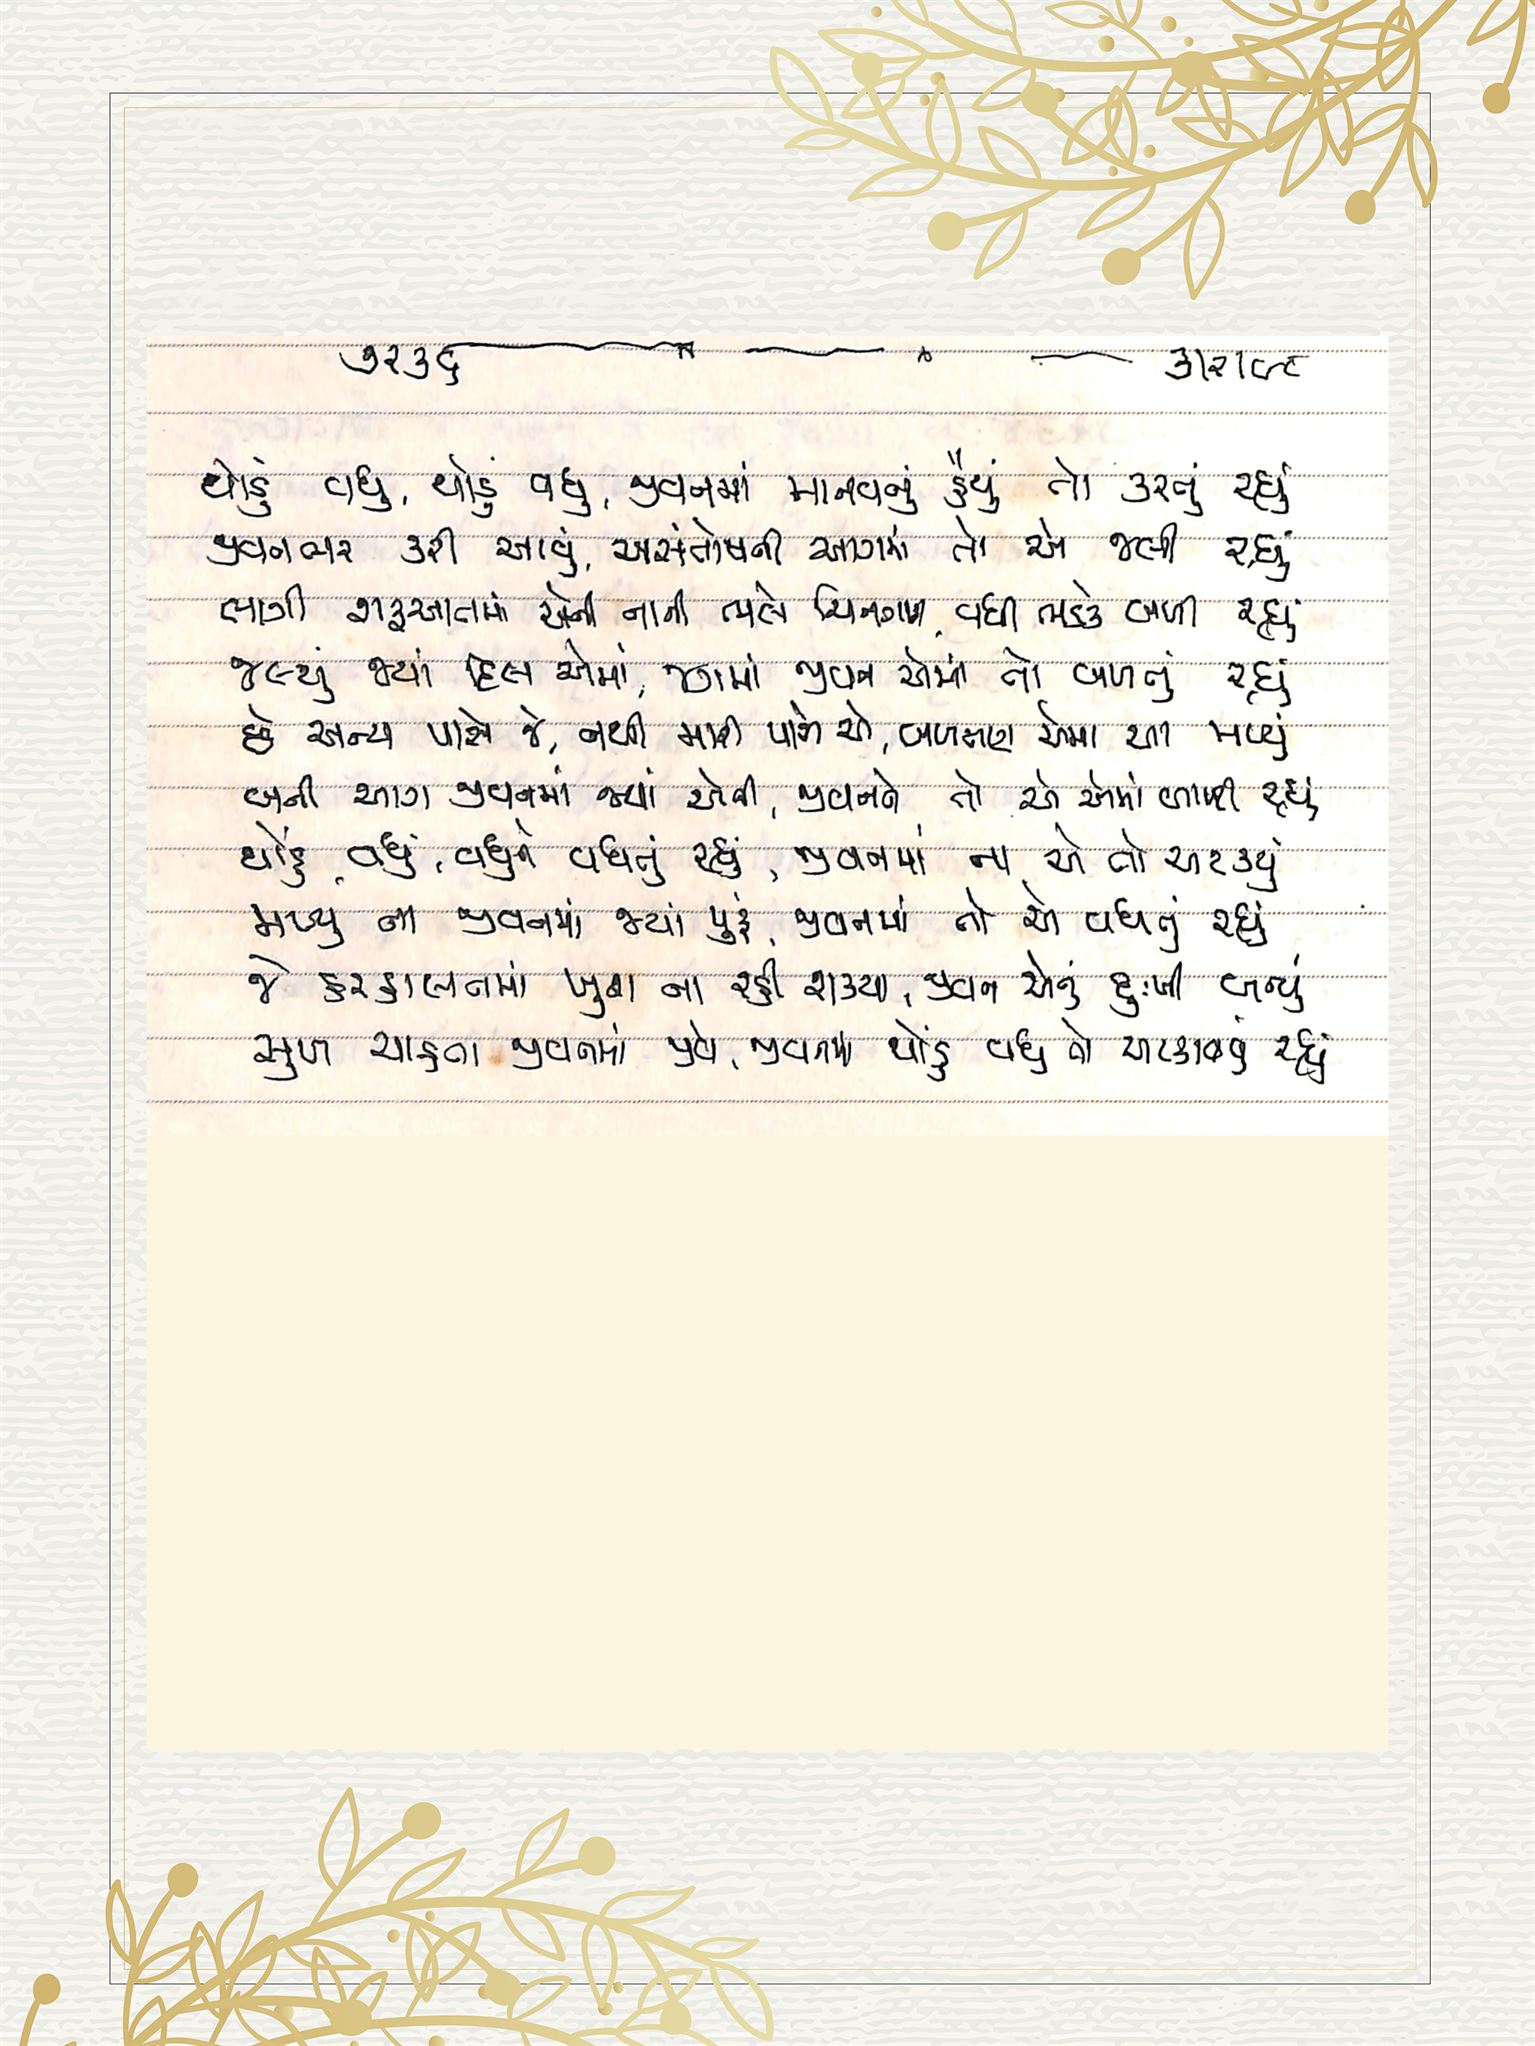 ૭૨૩૬ ૩।૨।૯૮
થોડું વધુ, થોડું વધુ, જીવનમાં માનવનું હૈયું તો કરતું રહ્યું
જીવનભર કરી આવું, અસંતોષની આગમાં તો એ જલી રહ્યું
લાગી શરૂઆતમાં એની નાની ભલે ચિનગારી, વધી ભડકે બળી રહ્યું
જલ્યું જ્યાં દિલ એમાં, જગમાં જીવન એમાં તો બળતું રહ્યું
છે અન્ય પાસે જે, નથી મારી પાસે એ, બળવાનું એમાં મળ્યું
બની આગ જીવનમાં જ્યાં એવી, જીવનને તો એ એમાં બાળી રહ્યું
થોડું વધું, વધુને વધતું રહ્યું, જીવનમાં ના એ તો અટક્યું
મળ્યુ ના જીવનમાં જ્યાં પુરૂં, જીવનમાં તો એ વધતું રહ્યું
જે હરહાલતમાં ખુશ ના રહી શક્યા, જીવન એનું દુઃખી બન્યું
સુખ ચાહતા જીવનમાં જીવે, જીવનમાં થોડું વધુ તો અટકાવવું રહ્યું